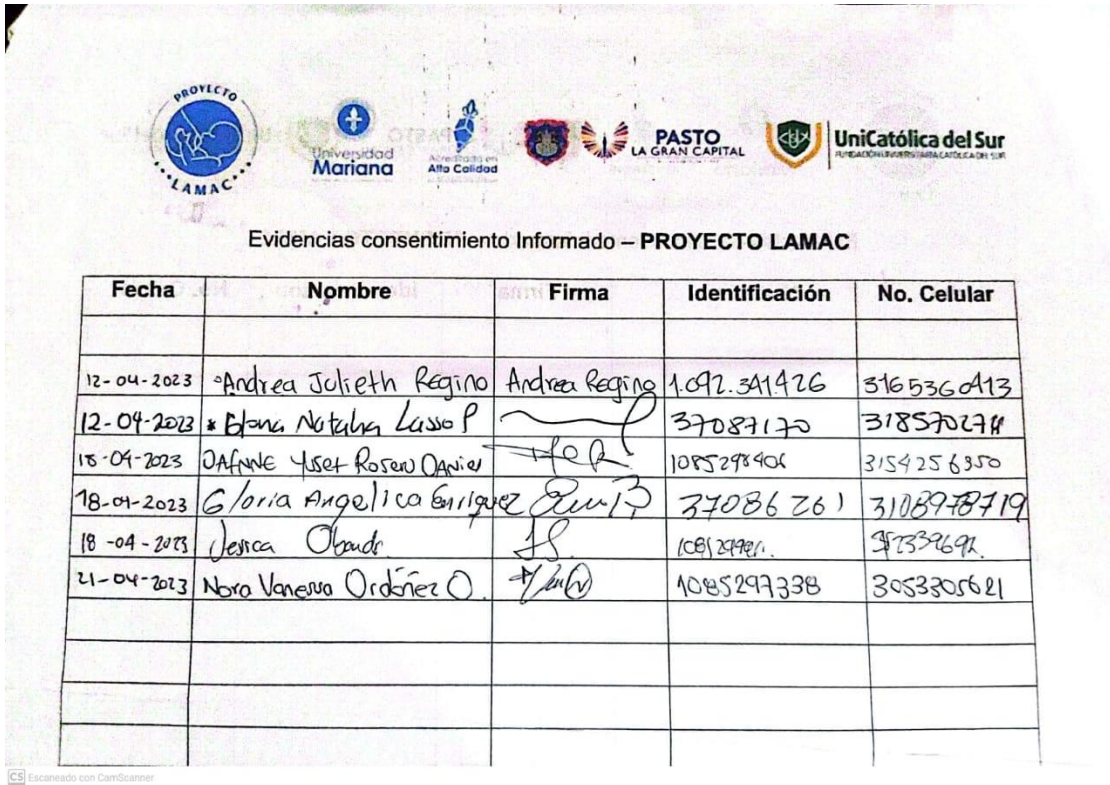 PROYECTO LAMAC
Universidad Mariana
Acreditada en Alta Calidad
PASTO LA GRAN CAPITAL
UniCatólica del Sur
FUNDACIÓN UNIVERSITARIA CATÓLICA DEL SUR
Evidencias consentimiento Informado – PROYECTO LAMAC
Fecha Nombre Firma Identificación No. Celular
12-04-2023 Andrea Julieth Regino Andrea Regino 1.092.341.426 3165360413
12-04-2023 Natalia Lasso P 37087170
18-04-2023 DAFNNE Yuset 1085298406 3154256350
18-04-2023 Gloria Angelica Enriquez 37086261 3108978719
18-04-2023 Jesica Obando
21-04-2023 Nora Vanessa Ordóñez O. 1085297338 3053305621
CS Escaneado con CamScanner